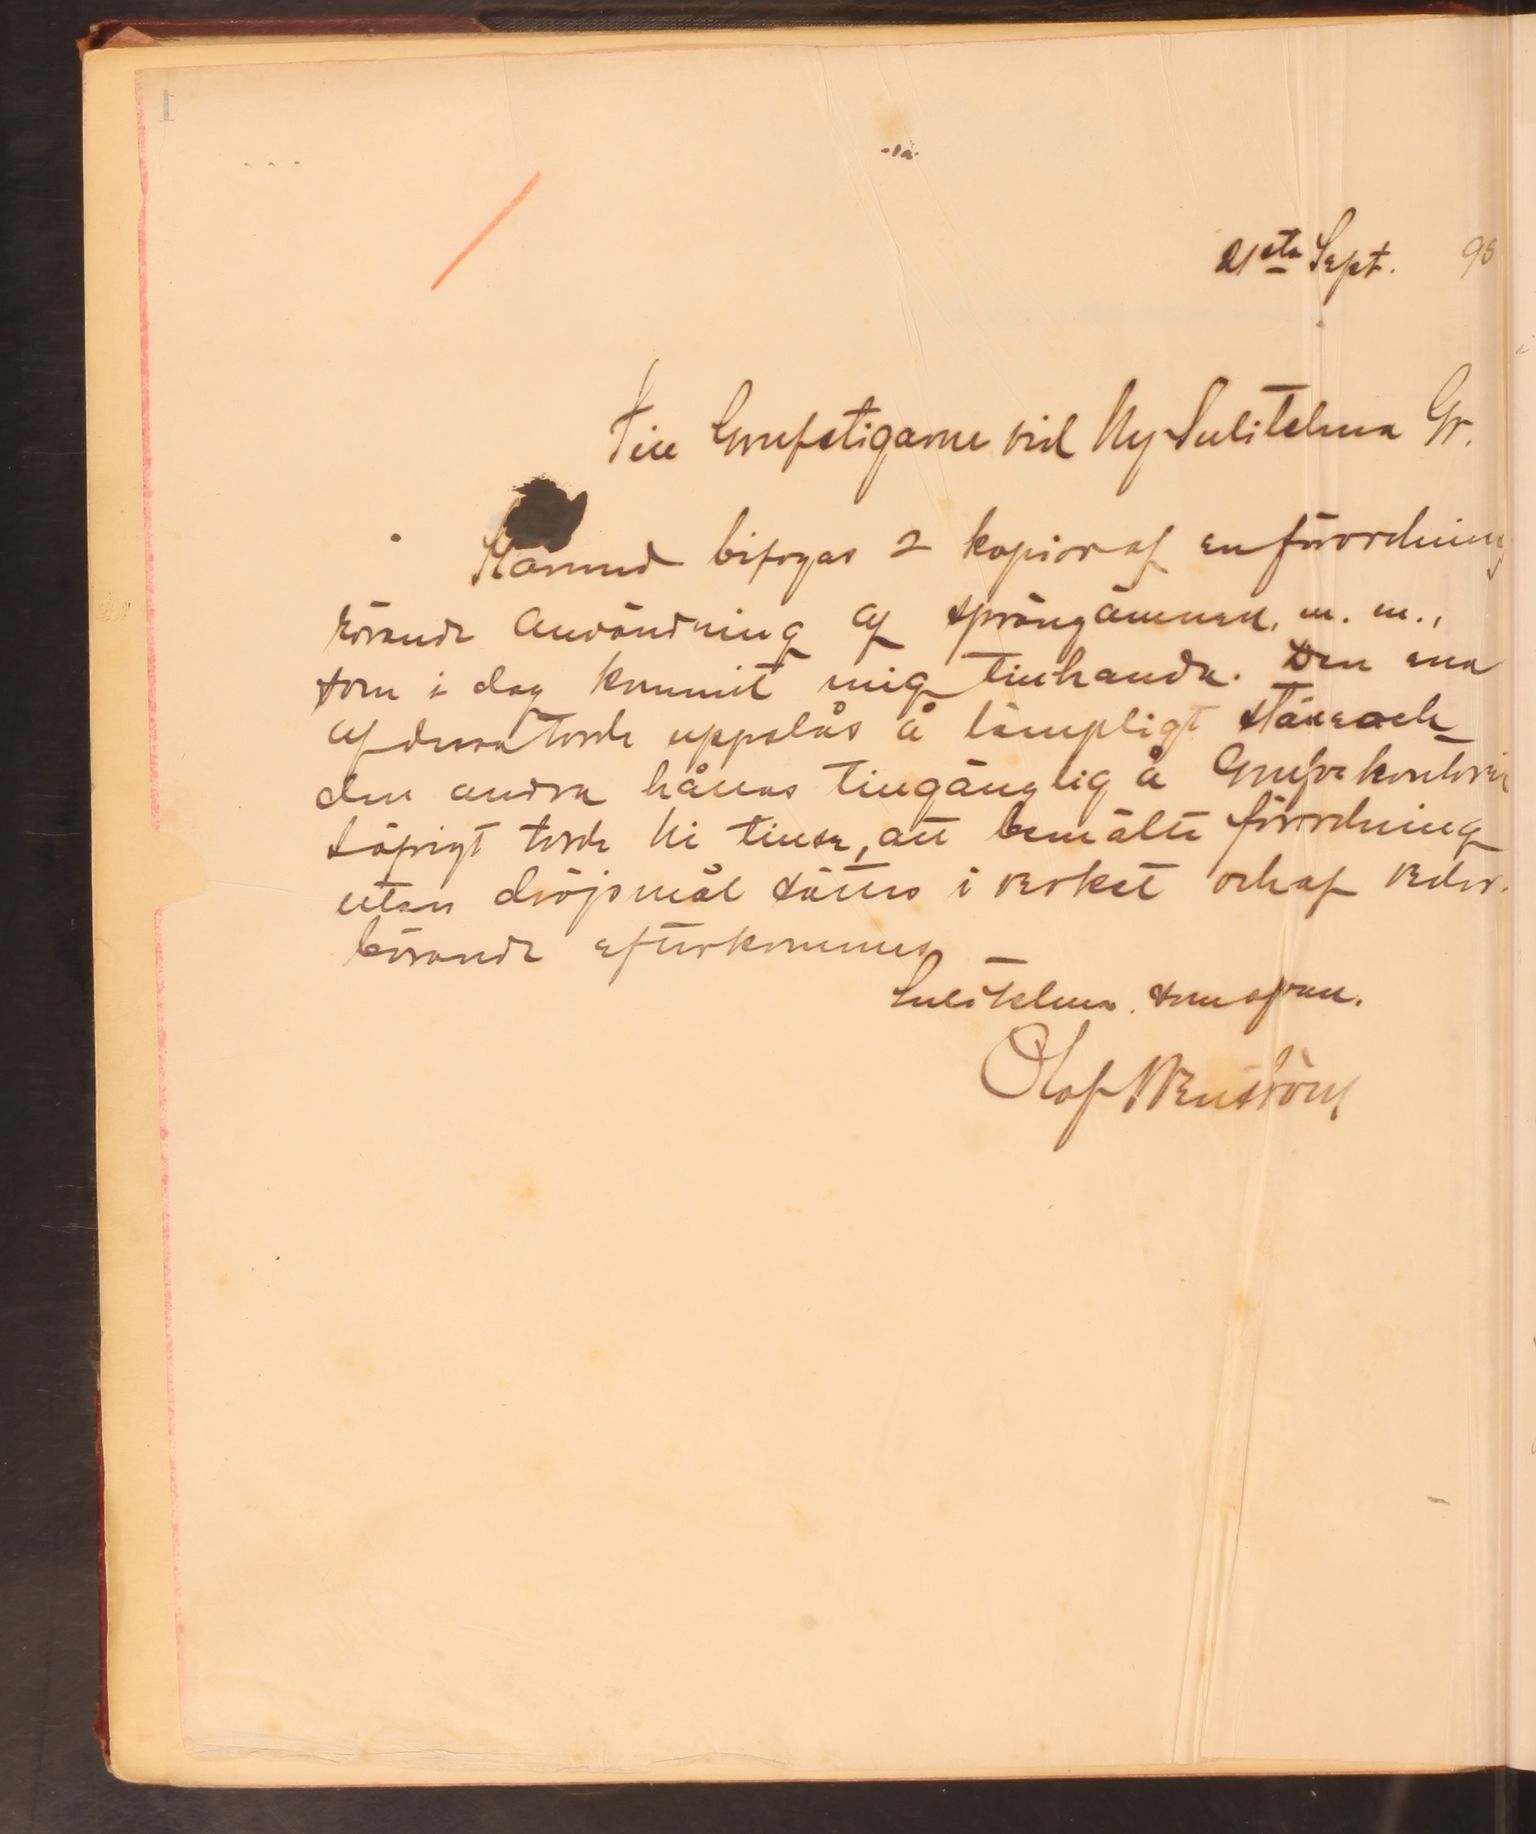 1
21sta Sept. 95
Till Grufstigarne vid Ny Sulitelma Gr.
Härmed bifogas 2 kopior af en förordning
rörande användning af sprängämnen, m. m.,
som i dag kommit mig tillhanda. Den ena
af dessa torde uppslås å lämpligt ställe och
den andra hållas tillgänglig å Grufvekontoret
Söfrigt torde Ni tillse, att bemälte förordning
utan dröjsmål sättes i verket och af veder-
börande efterkommes
Sulitelma, som ofvan.
Olof Wenström